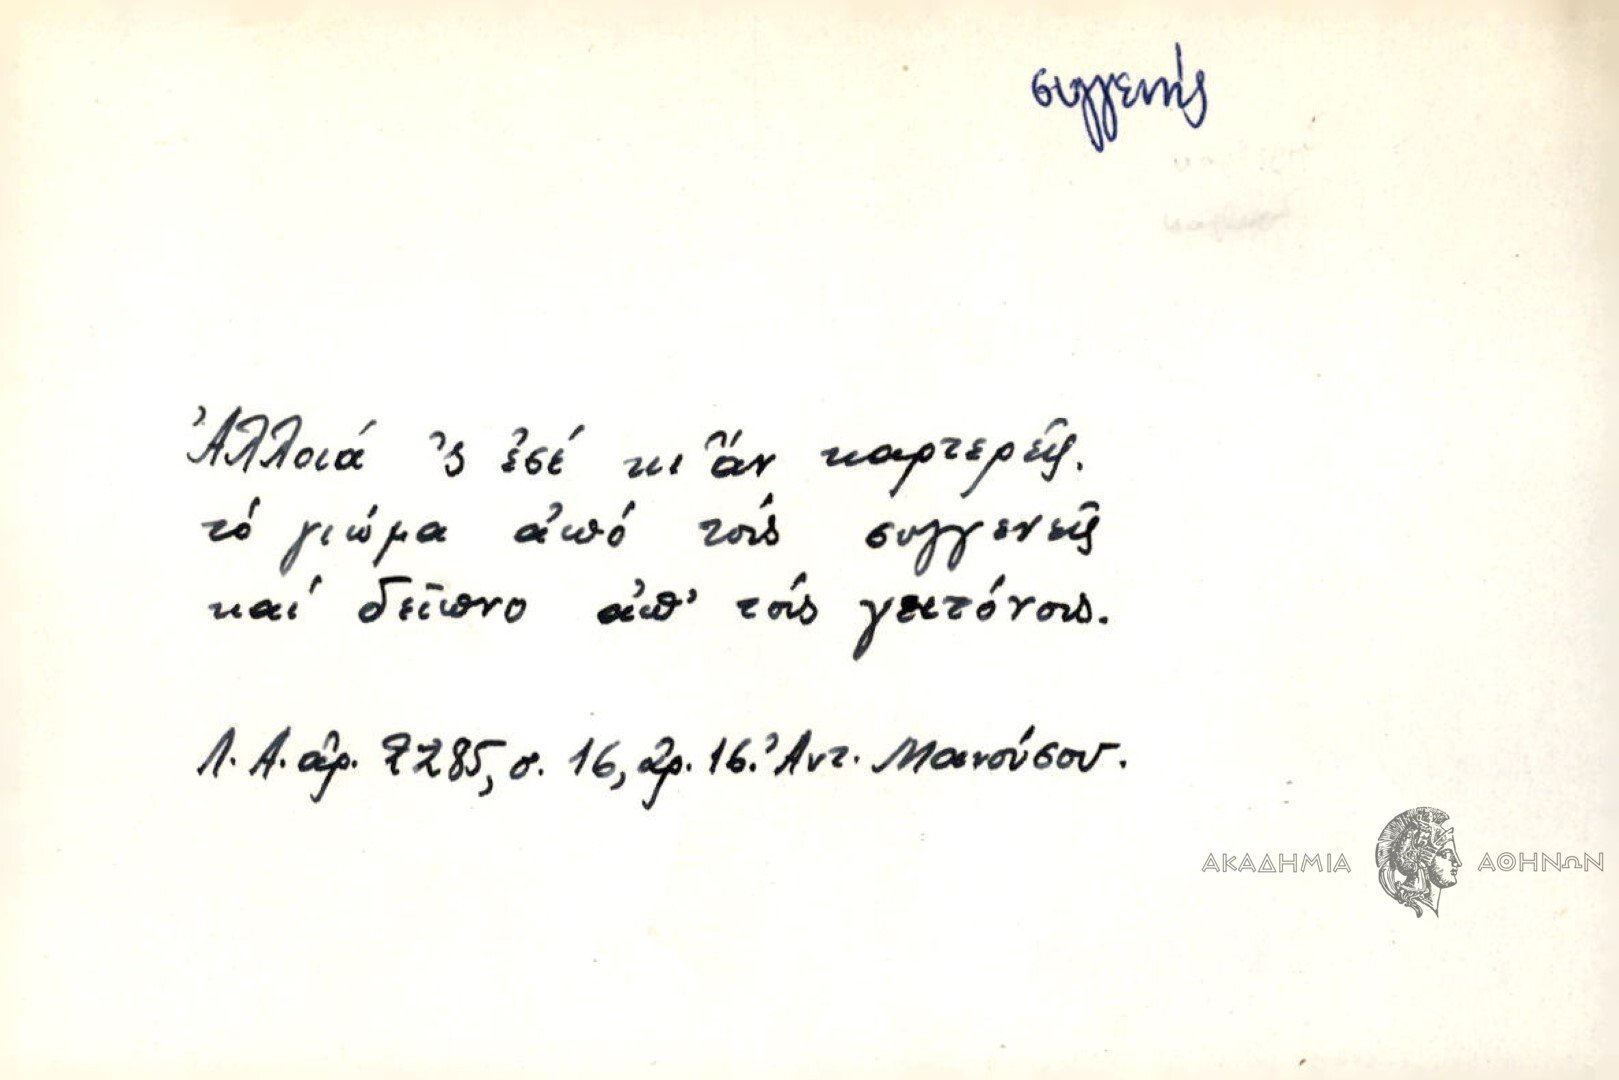 συγγενής
Ἀλλοιά 'ς ἐσέ κι ἄν καρτερεῖς.
τό γιώμα ἀπό τοίς συγγενεῖς
καί δεῖπνο ἀπ' τοίς γειτόνοις.
Λ. Α. ἀρ. 2285, σ. 16, ἀρ. 16. Ἀντ. Μανούσου.
ΑΚΑΔΗΜΙΑ ΑΘΗΝΩΝ